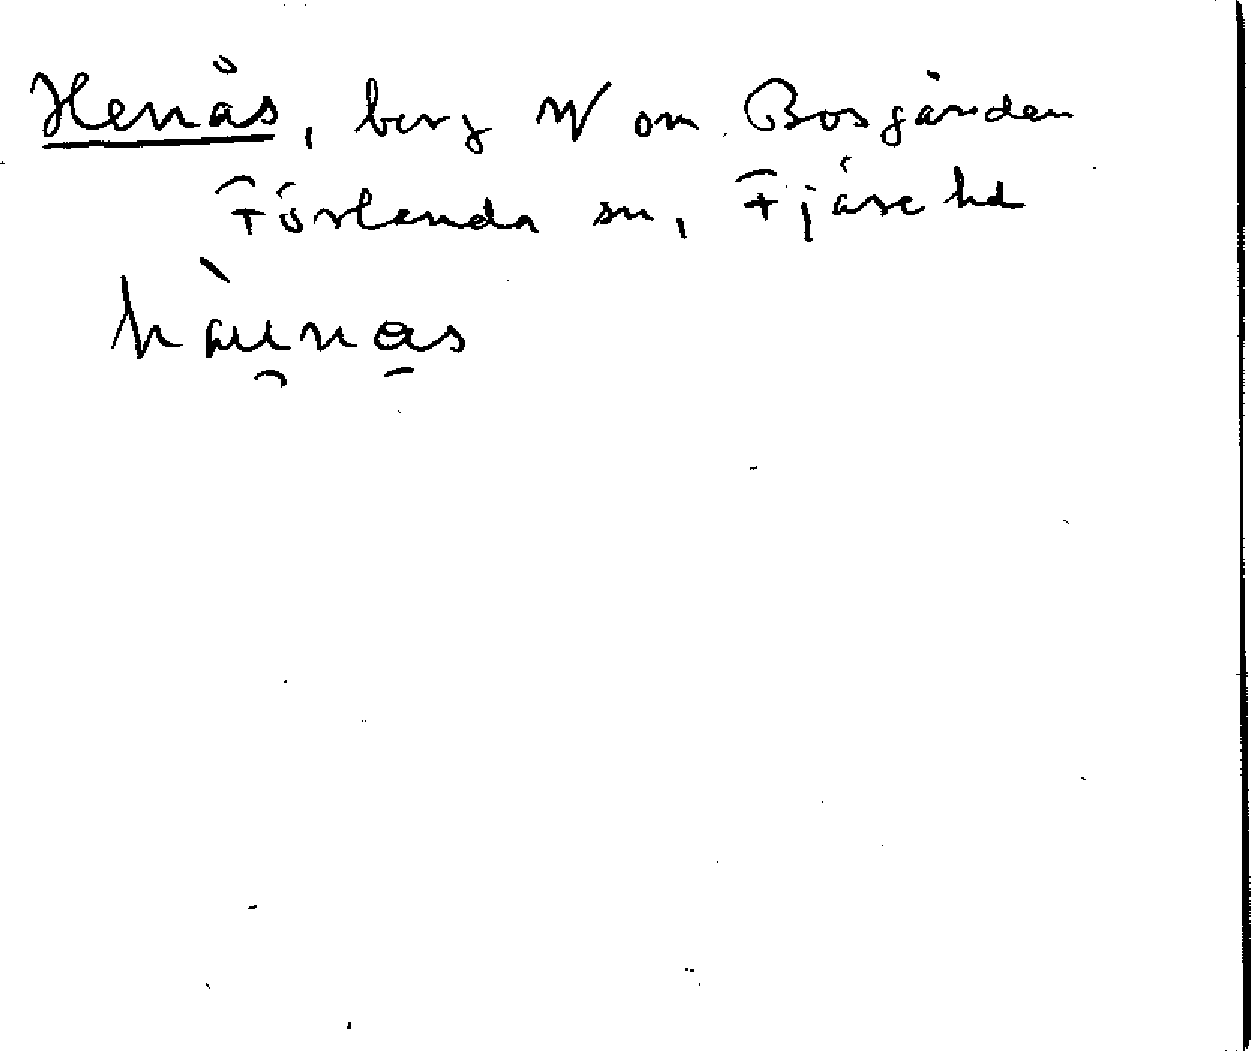 Henås, berg N om Bosgården
Förlanda sn, Fjäre hd